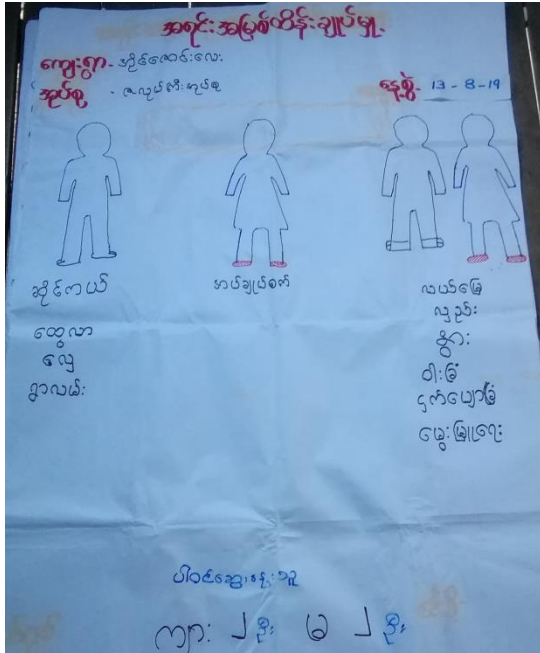 အရင်းအမြစ်ထိန်းချုပ်မှု
ကျေးရွာ - အိုင်ကောင်းလေး
အုပ်စု - ဇလုပ်ကြီးအုပ်စု
နေ့စွဲ - 13 - 8 - 19
ဆိုင်ကယ်
ထွေလာ
လှေ
ရွာလမ်း
အပ်ချုပ်စက်
လယ်မြေ
လှည်း
နွား
ဝါးခြံ
ငှက်ပျောခြံ
မွေးမြူရေး
ပါဝင်ဆွေးနွေးသူ
ကျား ၂ ဦး မ ၂ ဦး